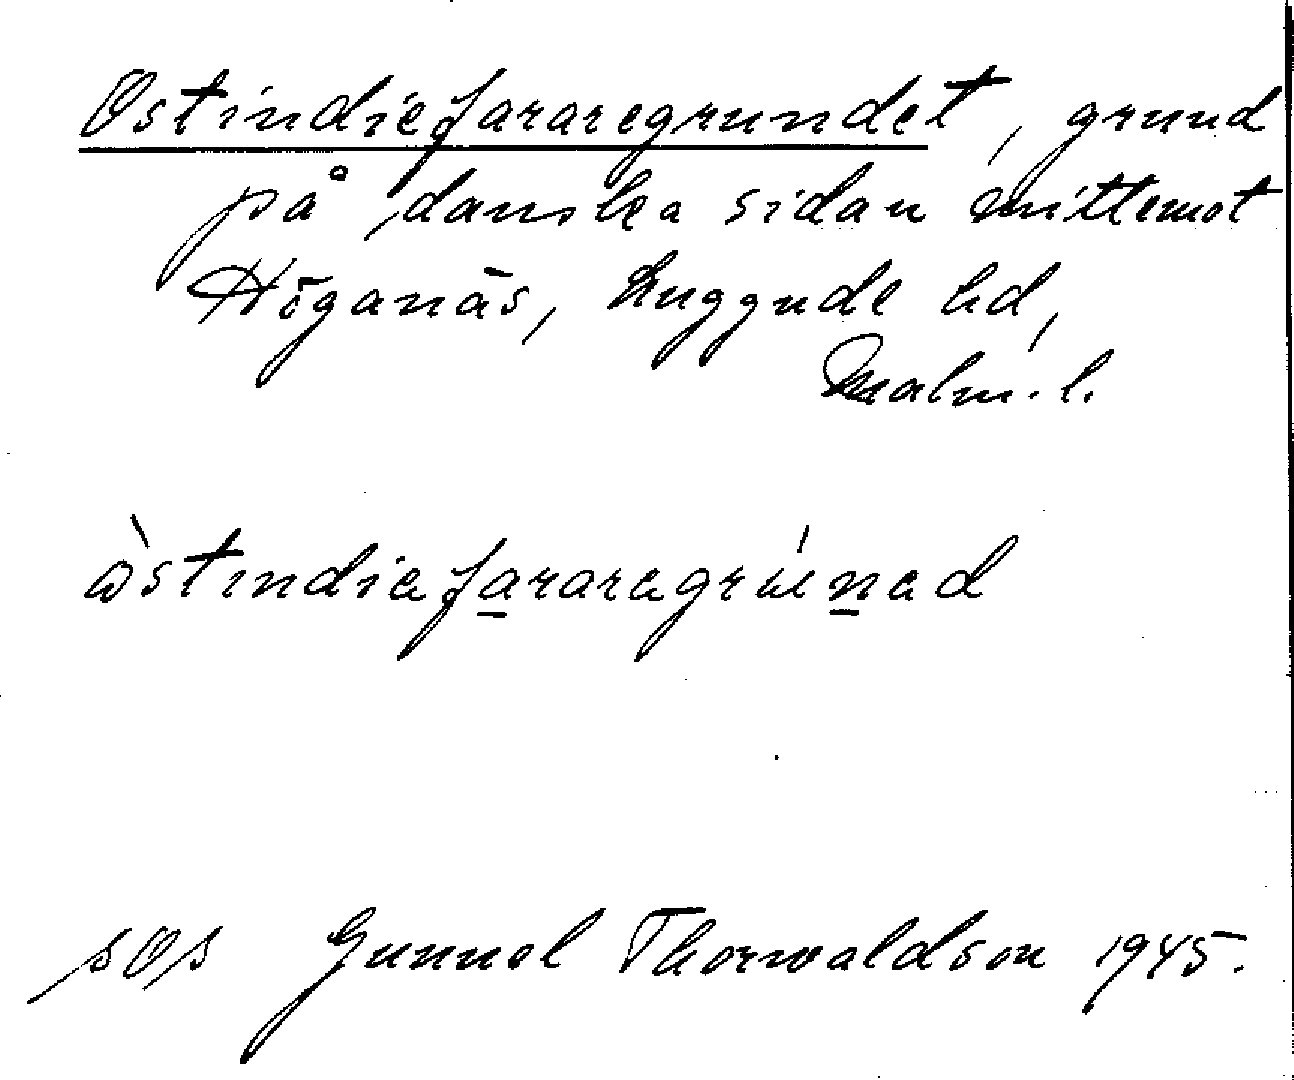 Ostindiefararegrundet, grund
på danska sidan mittemot
Höganäs, Luggude hd,
Malm. l.
òstindiefararegrúned
sOs Gunnel Thorwaldson 1945.